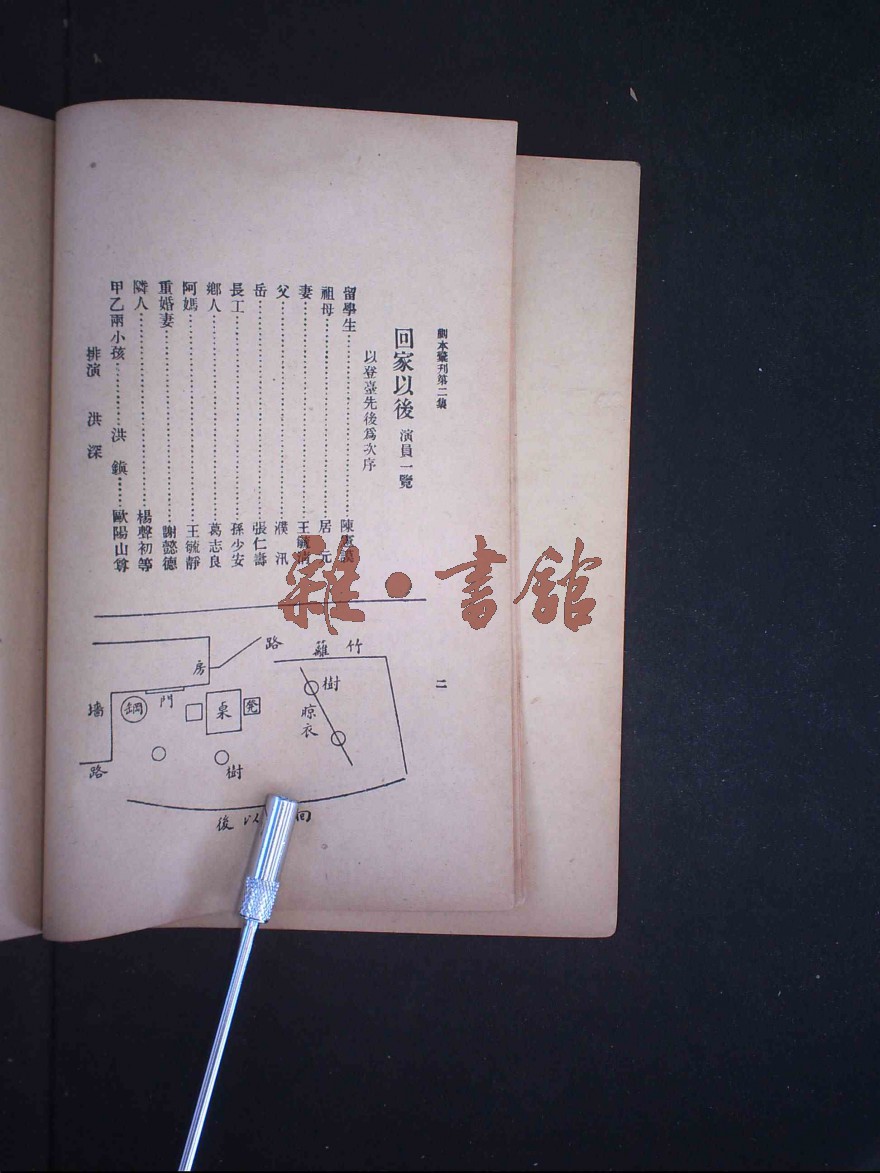 劇本彙刊第二集
二
回家以後 演員一覽
以登臺先後爲次序
留學生………陳
祖母………居 元
妻………王毓
父………濮 汛
岳………張仁壽
長工………孫少安
鄉人………葛志良
阿媽………王毓靜
重婚妻………謝懿德
隣人………楊聲初等
甲乙兩小孩………洪 鎮……歐陽山尊
排演 洪 深
雜·書館
路
竹籬
房
樹
墻
門
桌
凳
晾衣
路
樹
回 以後